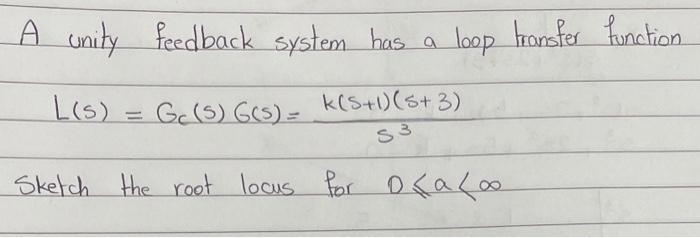 A unity feedback system has a loop transfer function
L(s) = Gc(s) G(s) = k(s+1)(s+3) / s³
Sketch the root locus for 0 ⩽ a < ∞